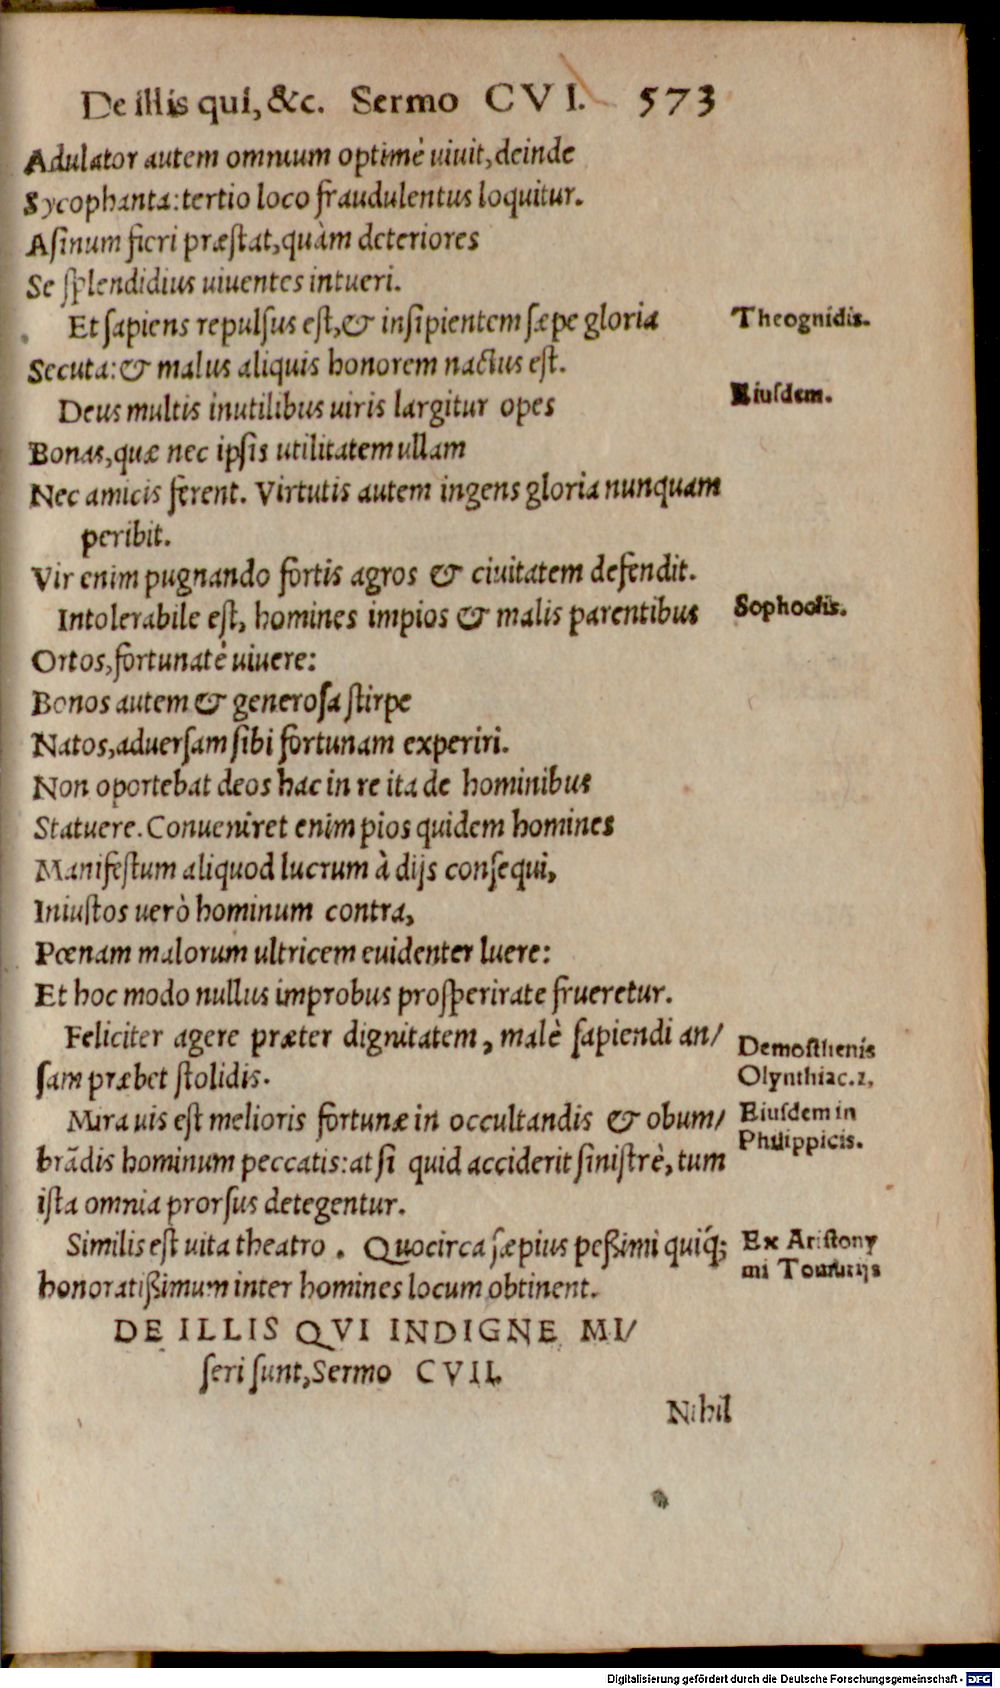 De illis qui, &c. Sermo CVI. 573
Adulator autem omnium optimè uiuit, deinde
Sycophanta: tertio loco fraudulentus loquitur.
Asinum fieri præstat, quàm deteriores
Se splendidius uiuentes intueri.
Et sapiens repulsus est, & insipientem sæpe gloria
Theognidis.
Secuta: & malus aliquis honorem nactus est.
Deus multis inutilibus uiris largitur opes
Eiusdem.
Bonas, quæ nec ipsis utilitatem ullam
Nec amicis ferent. Virtutis autem ingens gloria nunquam
peribit.
Vir enim pugnando fortis agros & ciuitatem defendit.
Intolerabile est, homines impios & malis parentibus
Sophoclis.
Ortos, fortunatè uiuere:
Bonos autem & generosa stirpe
Natos, aduersam sibi fortunam experiri.
Non oportebat deos hac in re ita de hominibus
Statuere. Conueniret enim pios quidem homines
Manifestum aliquod lucrum à dijs consequi,
Iniustos uerò hominum contra,
Pœnam malorum ultricem euidenter luere:
Et hoc modo nullus improbus prosperirate frueretur.
Feliciter agere præter dignitatem, malè sapiendi an/
Demosthenis
sam præbet stolidis.
Olynthiac. 2,
Mira uis est melioris fortunæ in occultandis & obum/
Eiusdem in
Philippicis.
brãdis hominum peccatis: at si quid acciderit sinistrè, tum
ista omnia prorsus detegentur.
Similis est uita theatro. Quocirca sæpius peßimi quiq́;
Ex Aristony
mi Tomarijs
honoratißimum inter homines locum obtinent.
DE ILLIS QVI INDIGNE MI/
seri sunt, Sermo CVII.
Nihil
Digitalisierung gefördert durch die Deutsche Forschungsgemeinschaft - DFG